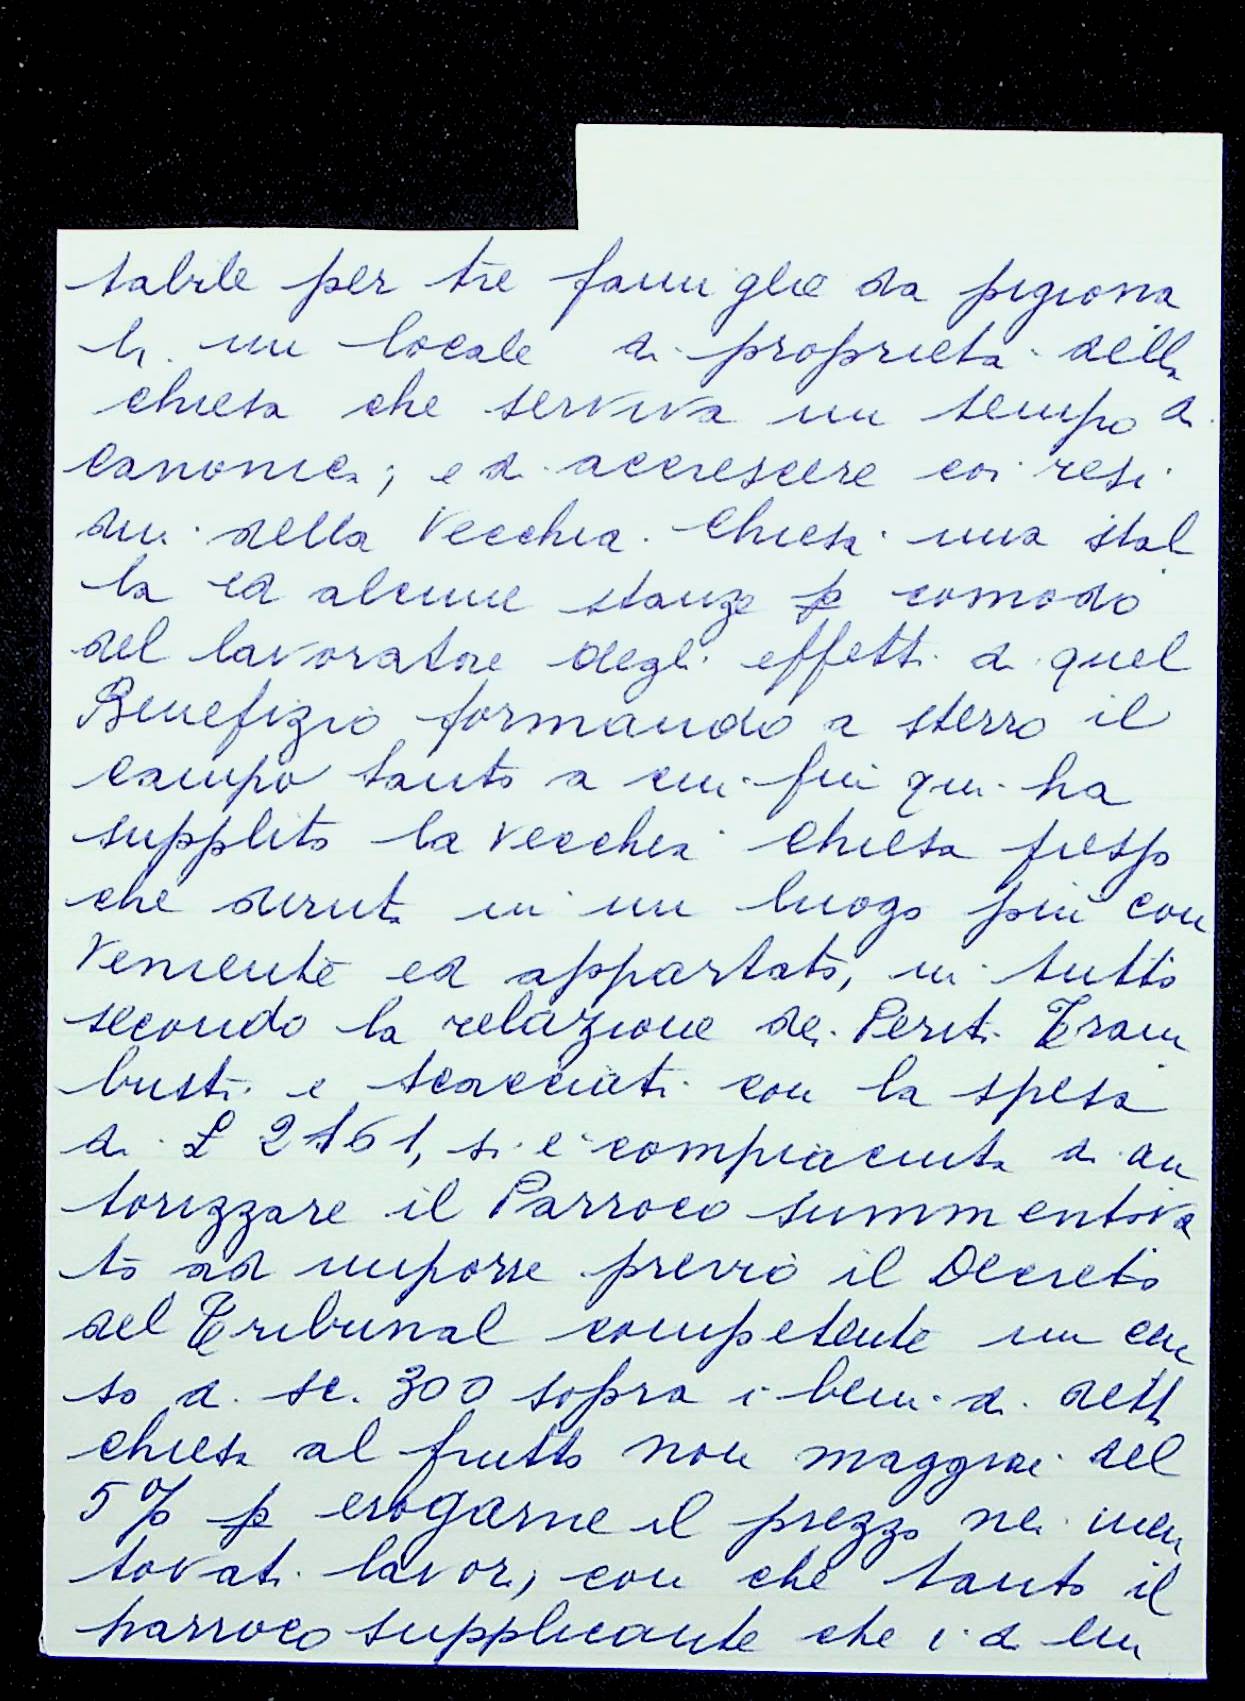 tabile per tre famiglie da pigiona
li un locale di proprietà della
chiesa che serviva un tempo di
canonica; e di accrescere coi resi
dui della Vecchia Chiesa una stal
la ed alcune stanze p comodo
del lavoratore degli effetti di quel
Benefizio formando a sterro il
campo santo a cui fin qui ha
supplito la vecchia Chiesa
che diruta in un luogo più con
veniente ed appartato, in tutto
secondo la relazione dei Periti Tram
busti e Scacciati con la spesa
di £ 2161, si è compiaciuta di au
torizzare il Parroco summentova
to ad imporre previo il Decreto
del Tribunal competente un cen
so di sc. 300 sopra i beni di dett
chiesa al frutto non maggior del
5% p erogarne il prezzo nei men
tovati lavori, con che tanto il
parroco supplicante che i di lui